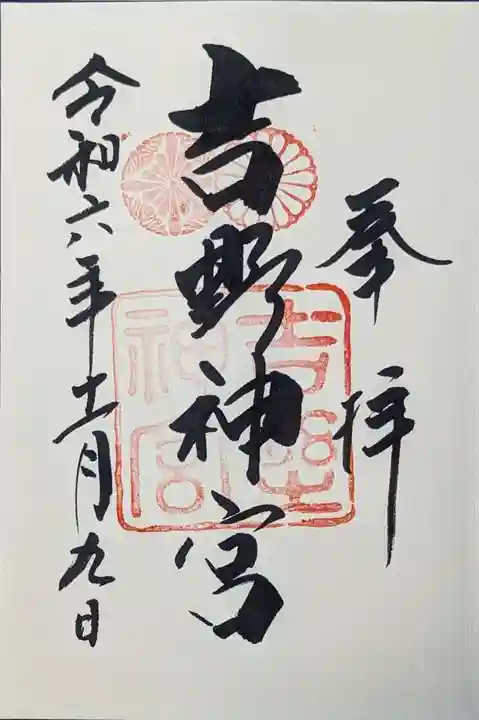 奉拝
吉野神宮
吉野
神宮
令和六年十一月九日